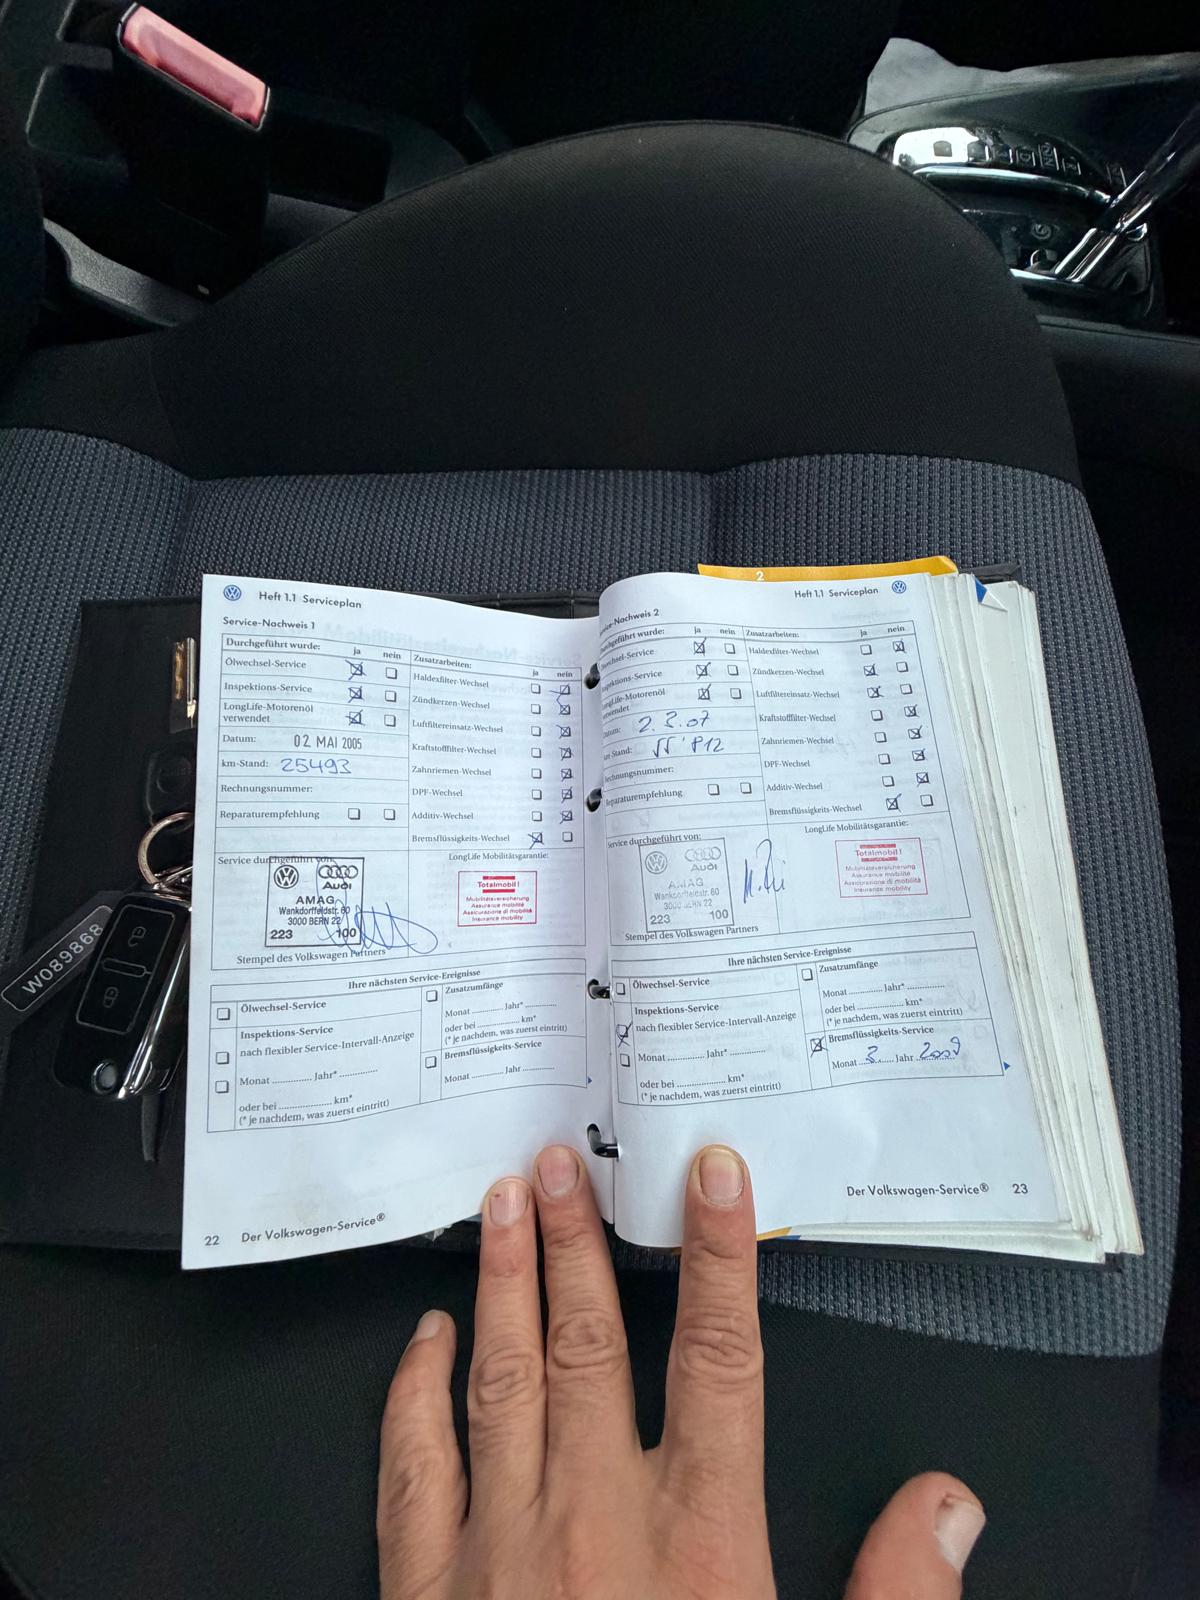 Heft 1.1 Serviceplan
Service-Nachweis 1
Durchgeführt wurde: ja nein
Ölwechsel-Service
Inspektions-Service
LongLife-Motorenöl
verwendet
Datum: 02 MAI 2005
km-Stand: 25493
Rechnungsnummer:
Reparaturempfehlung
Zusatzarbeiten: ja nein
Haldexfilter-Wechsel
Zündkerzen-Wechsel
Luftfiltereinsatz-Wechsel
Kraftstofffilter-Wechsel
Zahnriemen-Wechsel
DPF-Wechsel
Additiv-Wechsel
Bremsflüssigkeits-Wechsel
Service durchgeführt von:
Audi
AMAG
Wankdorffeldstr. 60
3000 BERN 22
223 100
Stempel des Volkswagen Partners
LongLife Mobilitätsgarantie:
Totalmobil!
Mobilitätsversicherung
Assurance mobilité
Assicurazione di mobilità
Insurance mobility
Ihre nächsten Service-Ereignisse
Ölwechsel-Service
Inspektions-Service
nach flexibler Service-Intervall-Anzeige
Monat ............. Jahr* .............
oder bei .................. km*
(* je nachdem, was zuerst eintritt)
Zusatzumfänge
Monat ........... Jahr* ...........
oder bei .................. km*
(* je nachdem, was zuerst eintritt)
Bremsflüssigkeits-Service
Monat ........... Jahr ...........
22 Der Volkswagen-Service®
2
Heft 1.1 Serviceplan
Service-Nachweis 2
Durchgeführt wurde: ja nein
Ölwechsel-Service
Inspektions-Service
LongLife-Motorenöl
verwendet
Datum: 2.3.07
km-Stand: 55'812
Rechnungsnummer:
Reparaturempfehlung
Zusatzarbeiten: ja nein
Haldexfilter-Wechsel
Zündkerzen-Wechsel
Luftfiltereinsatz-Wechsel
Kraftstofffilter-Wechsel
Zahnriemen-Wechsel
DPF-Wechsel
Additiv-Wechsel
Bremsflüssigkeits-Wechsel
Service durchgeführt von:
Audi
AMAG
Wankdorffeldstr. 60
3000 BERN 22
223 100
Stempel des Volkswagen Partners
LongLife Mobilitätsgarantie:
Totalmobil!
Mobilitätsversicherung
Assurance mobilité
Assicurazione di mobilità
Insurance mobility
Ihre nächsten Service-Ereignisse
Ölwechsel-Service
Inspektions-Service
nach flexibler Service-Intervall-Anzeige
Monat ............. Jahr* .............
oder bei .................. km*
(* je nachdem, was zuerst eintritt)
Zusatzumfänge
Monat ........... Jahr* ...........
oder bei .................. km*
(* je nachdem, was zuerst eintritt)
Bremsflüssigkeits-Service
Monat 3. Jahr 2009
Der Volkswagen-Service® 23
W089868